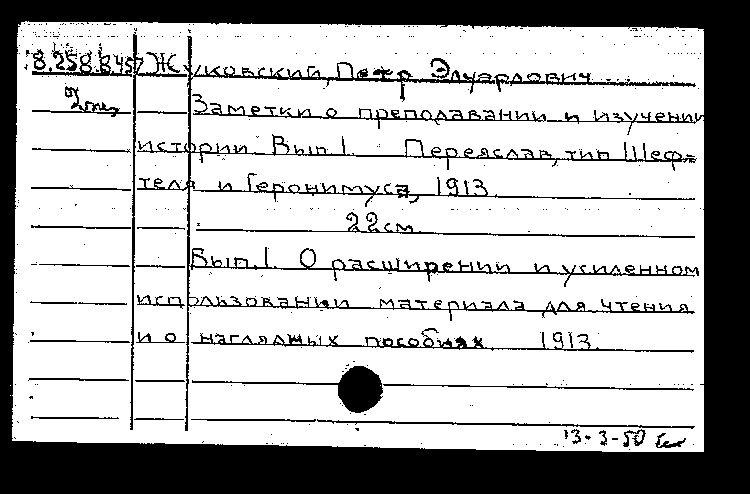 8.258.8457 Жуковский, Петр Эдуардович
Заметки о преподавании и изучении
истории. Вып. 1. Переяслав, тип Шеф-
теля и Геронимуса, 1913.
22 см.
Вып. 1. О расширении и усиленном
использовании материала для чтения
и о наглядных пособиях. 1913.
13-3-50